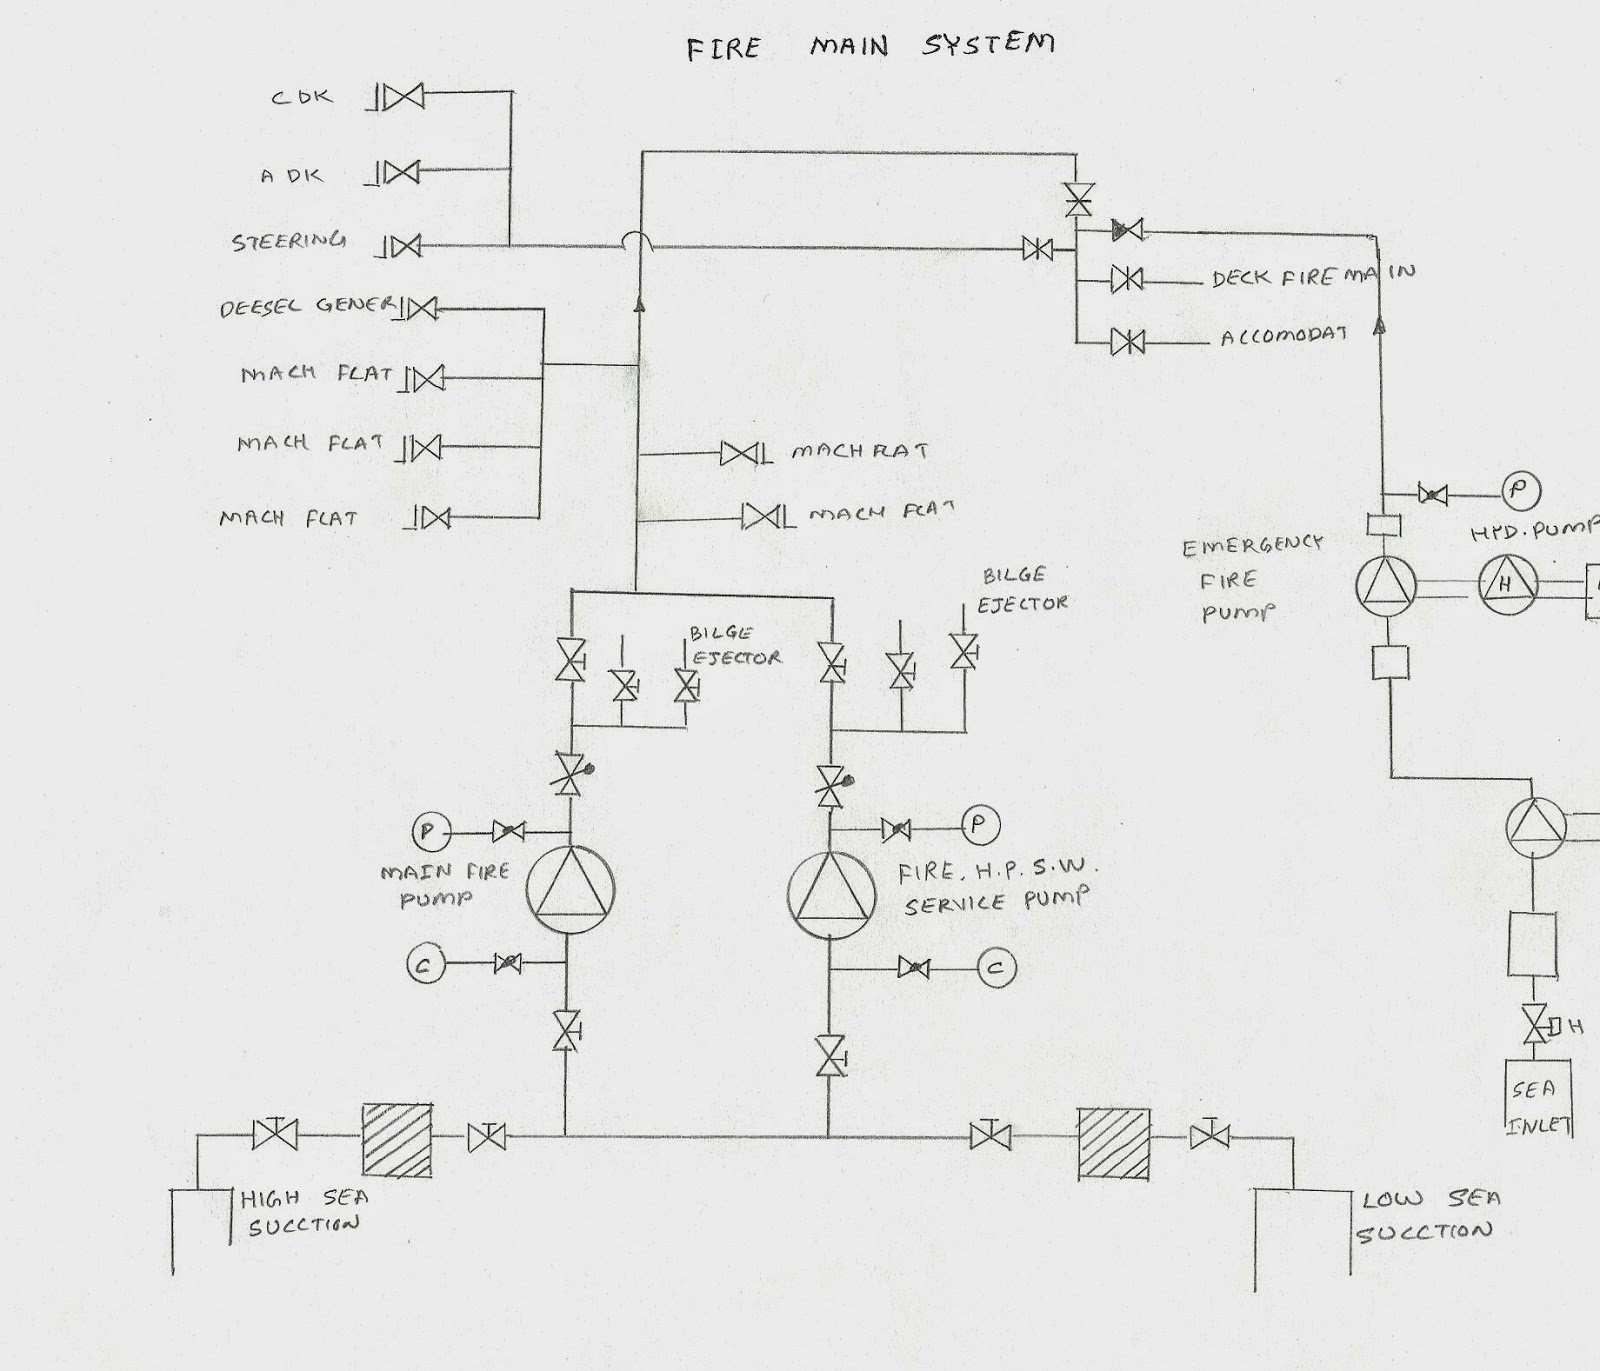 FIRE MAIN SYSTEM
C DK
A DK
STEERING
DEESEL GENER
MACH FLAT
MACH FLAT
MACH FLAT
DECK FIRE MAIN
ACCOMODAT
MACH FLAT
MACH FLAT
P
HYD. PUMP
EMERGENCY
FIRE
PUMP
H
BILGE
EJECTOR
BILGE
EJECTOR
P
MAIN FIRE
PUMP
P
FIRE. H.P. S.W.
SERVICE PUMP
C
C
H
SEA
INLET
HIGH SEA
SUCCTION
LOW SEA
SUCCTION